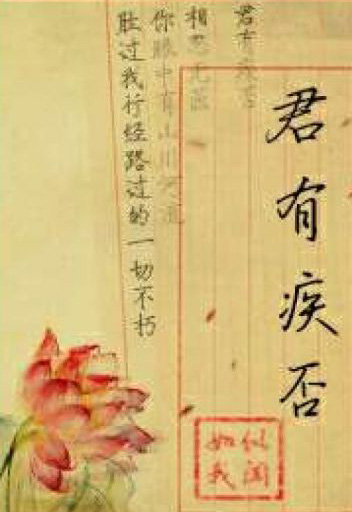 君有疾否
君有疾否
相思无药
你眼中有山川河流
胜过我行经路过的一切不朽
似闺
如我